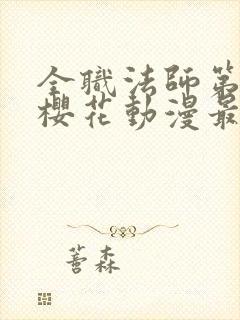 全職法師第
櫻花動漫最
萫森